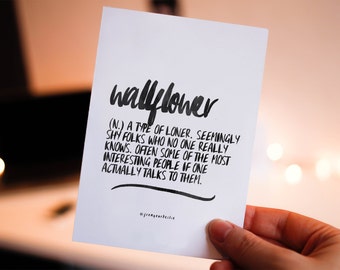 wallflower
(N.) A TYPE OF LONER. SEEMINGLY
SHY FOLKS WHO NO ONE REALLY
KNOWS. OFTEN SOME OF THE MOST
INTERESTING PEOPLE IF ONE
ACTUALLY TALKS TO THEM.